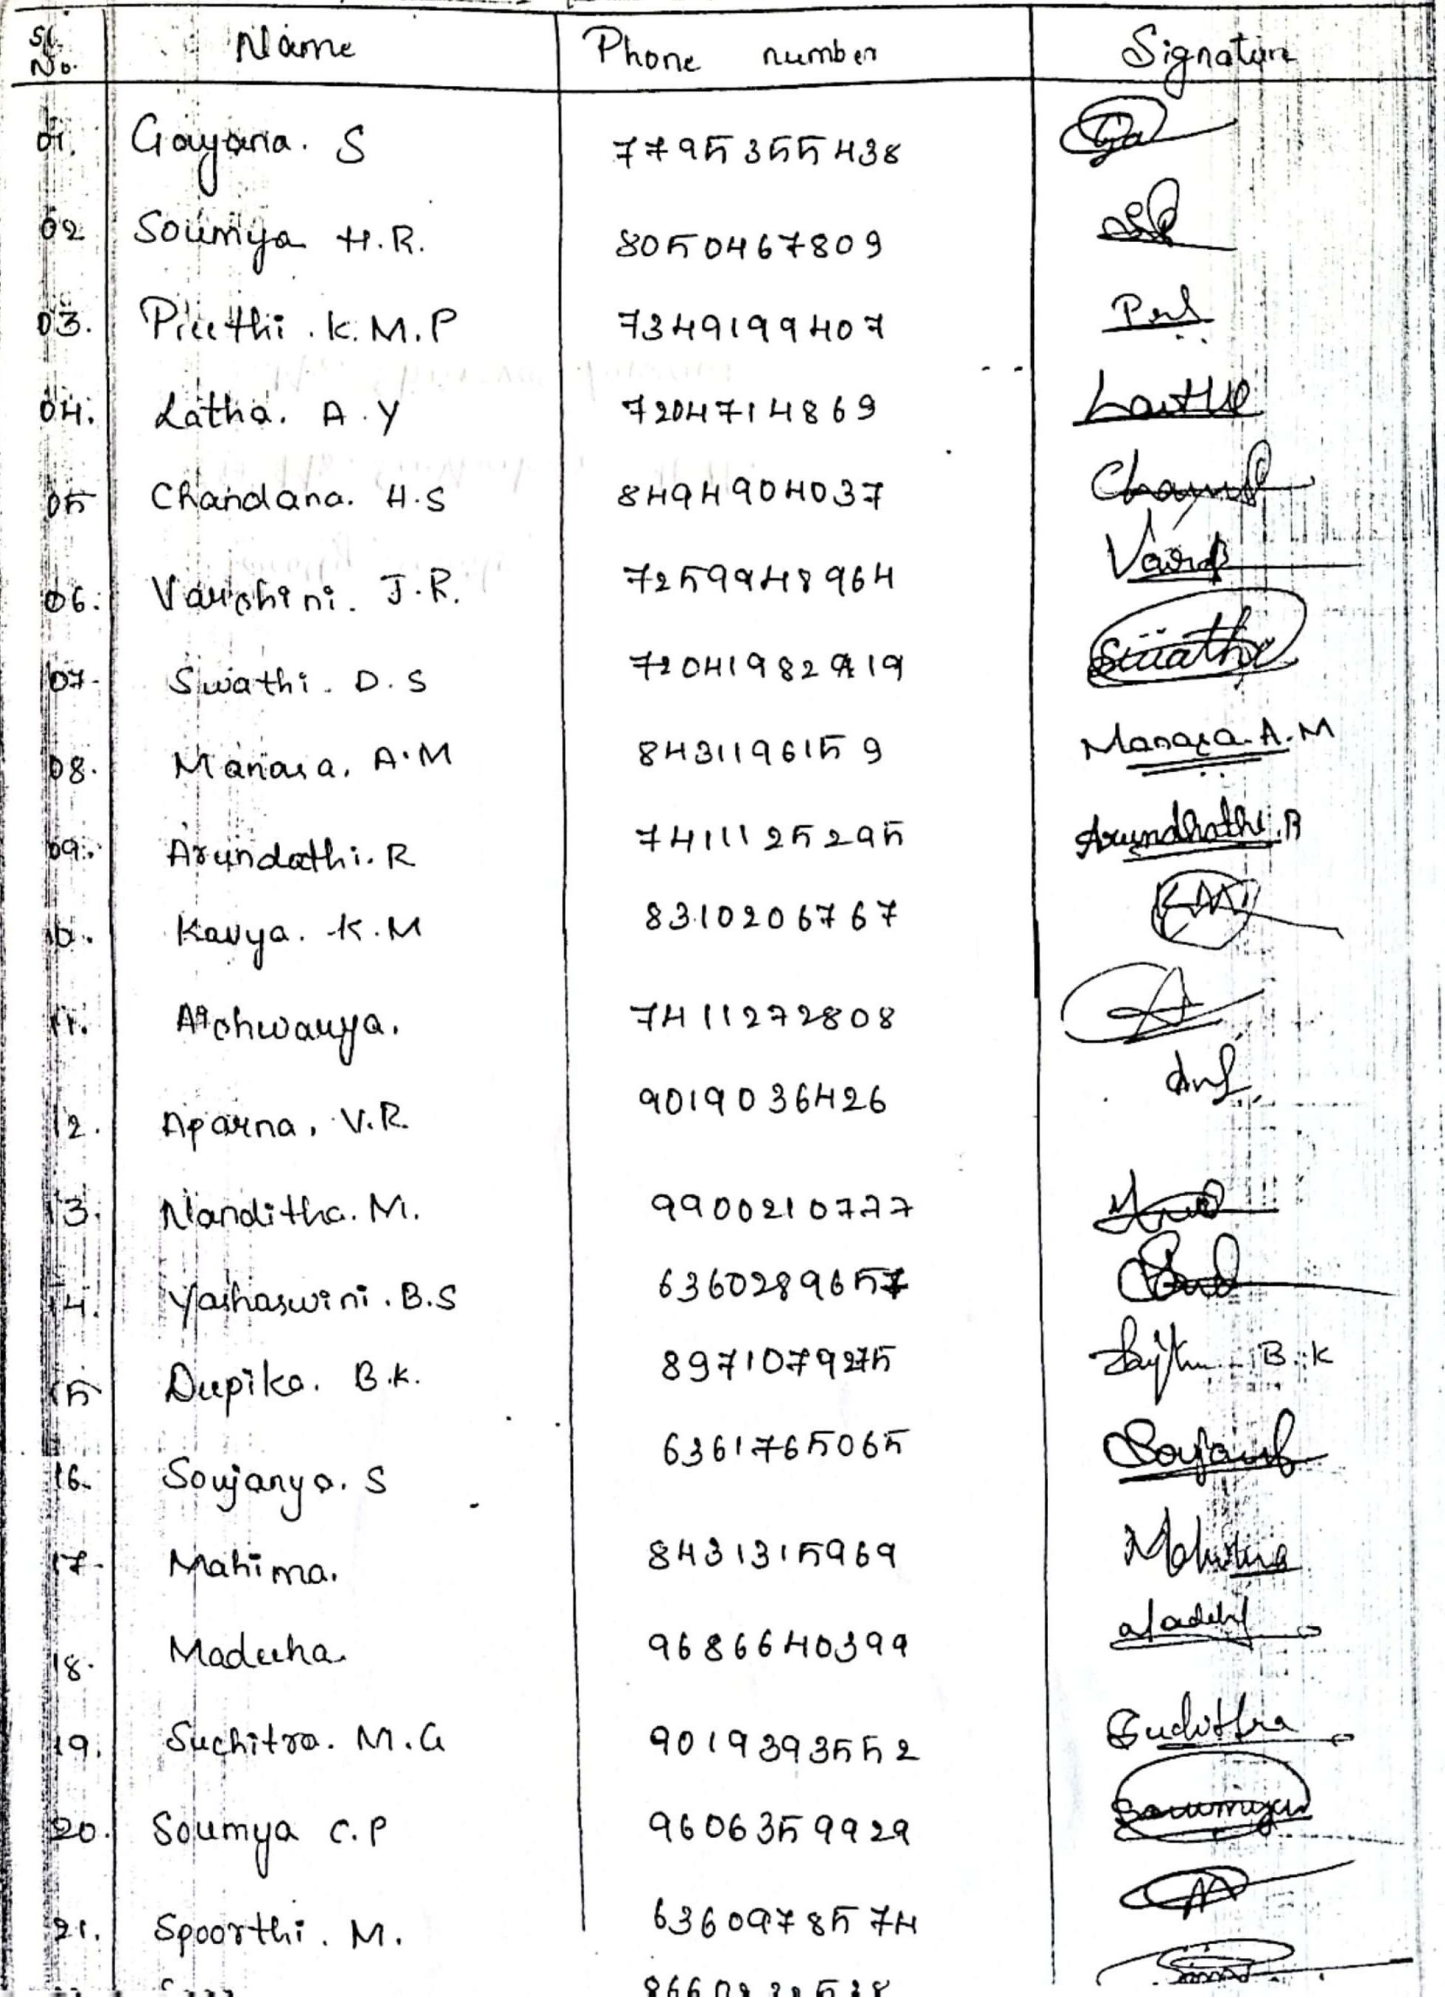 Sl. No. Name Phone number Signature
01. Gayana. S 7795355438
02 Soumya H.R. 8050467809
03. Preethi . K. M. P 7349199407
04. Latha. A . Y 7204714869 Latha
05 Chandana. H.S 8494904037
06. Varshini. J.R. 7259948964
07. Swathi. D. S 72041982919 Swathi
08. Manasa. A.M 8431196159 Manasa. A. M
09. Arundathi. R 7411125295 Arundhathi. R
10. Kavya. K. M 8310206767 KM
11. Aishwarya. 7411272808 A
12. Aparna. V.R. 9019036426
13. Nanditha. M. 9900210777
14. Yashaswini. B.S 6360289657
15 Deepika. B.K. 8971079275 B. K
16. Soujanya. S 6361765065
17. Mahima. 8431315969 Mahima
18. Madeeha. 9686640399
19. Suchitra. M. G 9019393552 Suchithra
20. Soumya C. P 9606359929 Soumya
21. Spoorthi. M. 6360978574